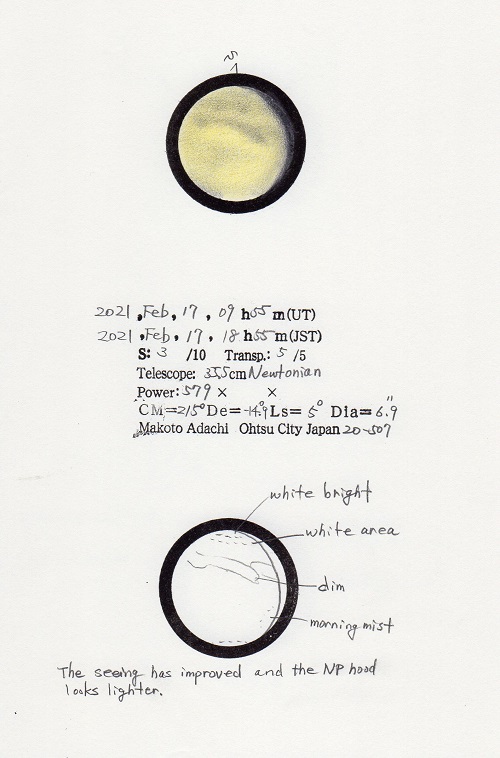 S
2021, Feb, 17, 09 h 55 m (UT)
2021, Feb, 17, 18 h 55 m (JST)
S: 3 /10 Transp.: 5 /5
Telescope: 355cm Newtonian
Power: 579 × ×
CM=215° De=-14.9 Ls= 5° Dia= 6.9"
Makoto Adachi Ohtsu City Japan 20-507
white bright
white area
dim
morning mist
The seeing has improved and the NP hood
looks lighter.